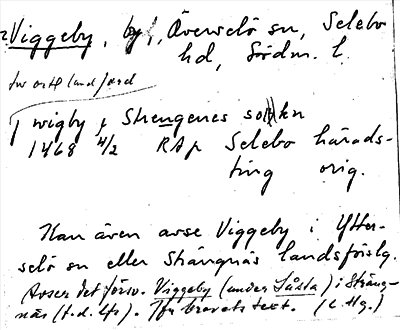 Viggeby, by, Överselö sn, Selebo
hd, Södm. l.
j wigby j Strengenes sokn
1468 4/2 RAp Selebo härads-
ting orig.
Kan även avse Viggeby i Ytter-
selö sn eller Strängnäs landsförslg.
Avser det försv. Viggeby (under Sästa) i Sträng-
näs (f.d. lfs). Jfr brevets text. (C. Hg.)